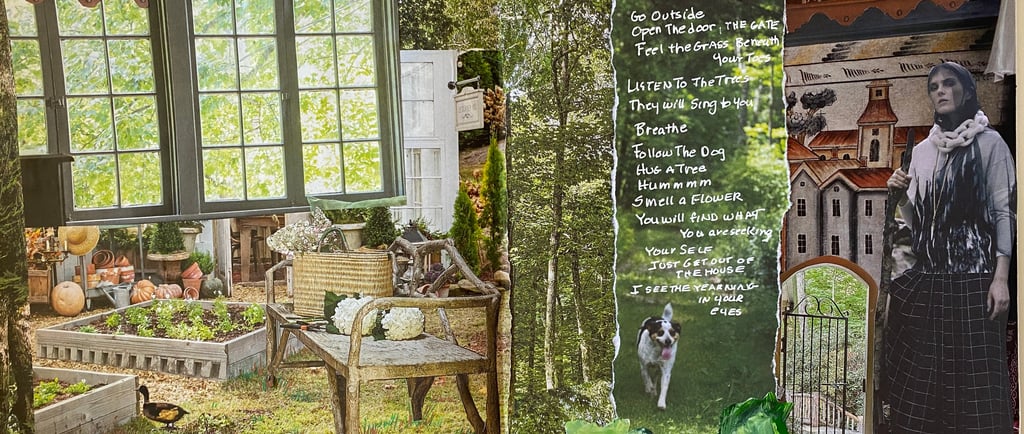 Go Outside
Open The door, THE GATE
Feel the GRASS Beneath
Your Toes
LISTEN To The Trees
They will Sing to you
Breathe
Follow The Dog
HUG A Tree
Hummmm
Smell a FLOWER
You will find WHAT
You are seeking
YOUR SELF
JUST GET OUT OF
THE HOUSE
I SEE THE YEARNING
IN YOUR
EYES